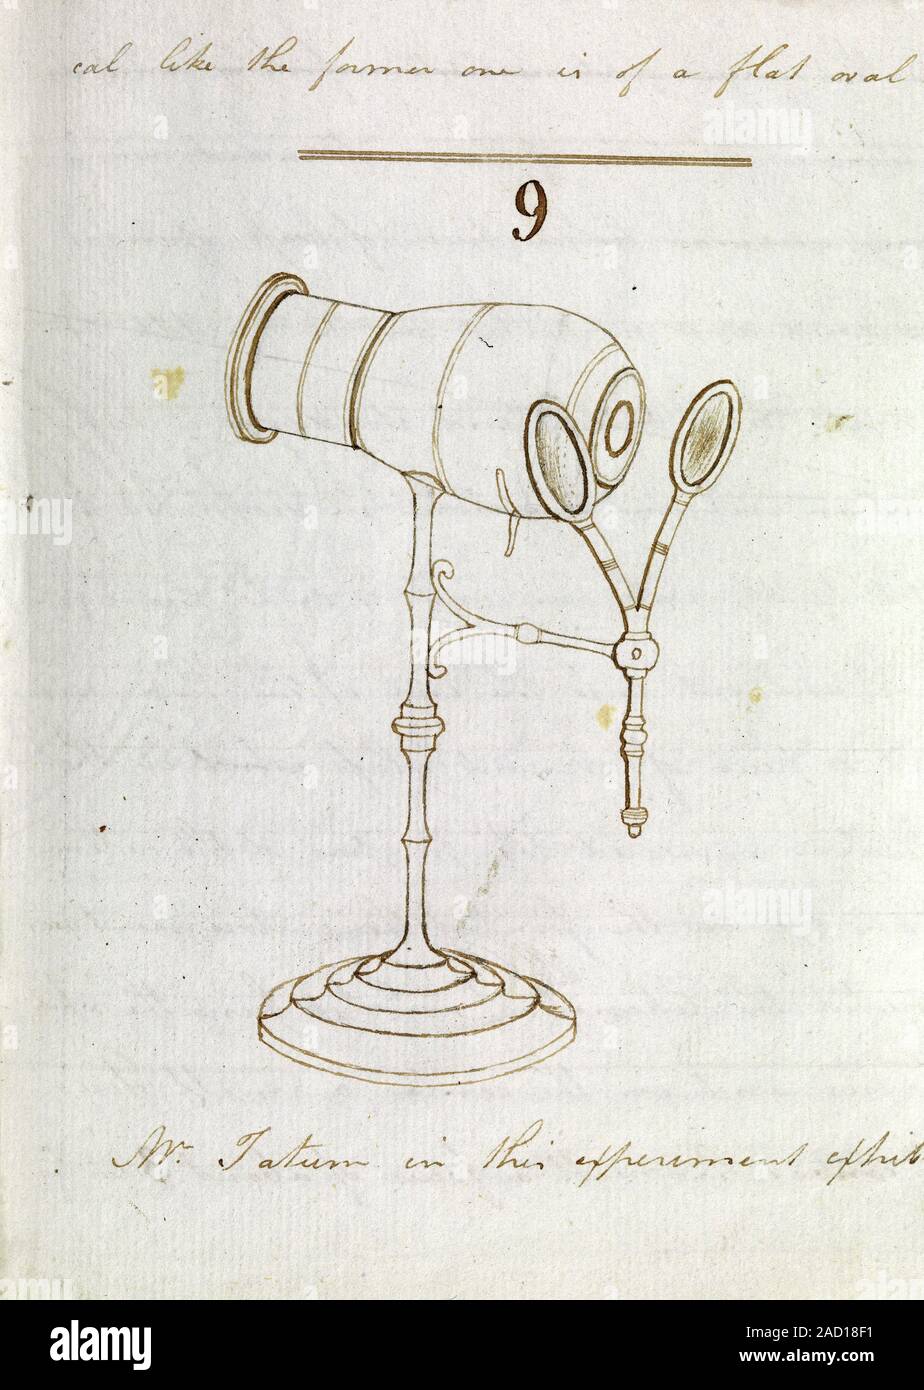 cal like the former one is of a flat oval
9
Mr. Tatum in this experiment exhib
alamy
alamy
Image ID: 2AD18F1
www.alamy.com